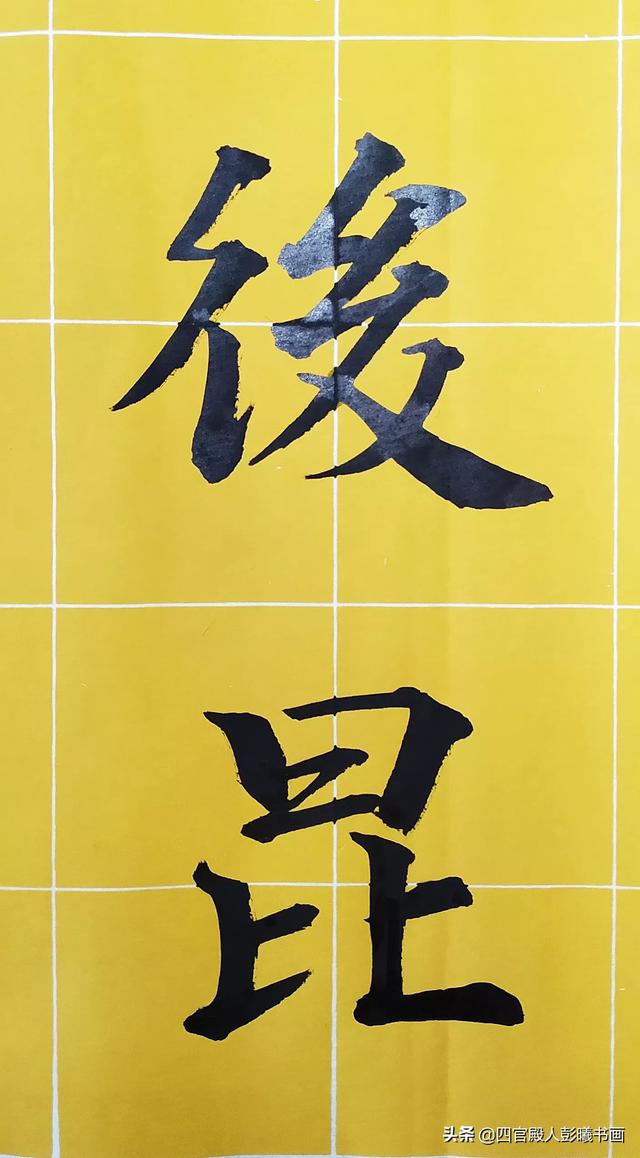 後
昆
头条 @四官殿人彭曦书画